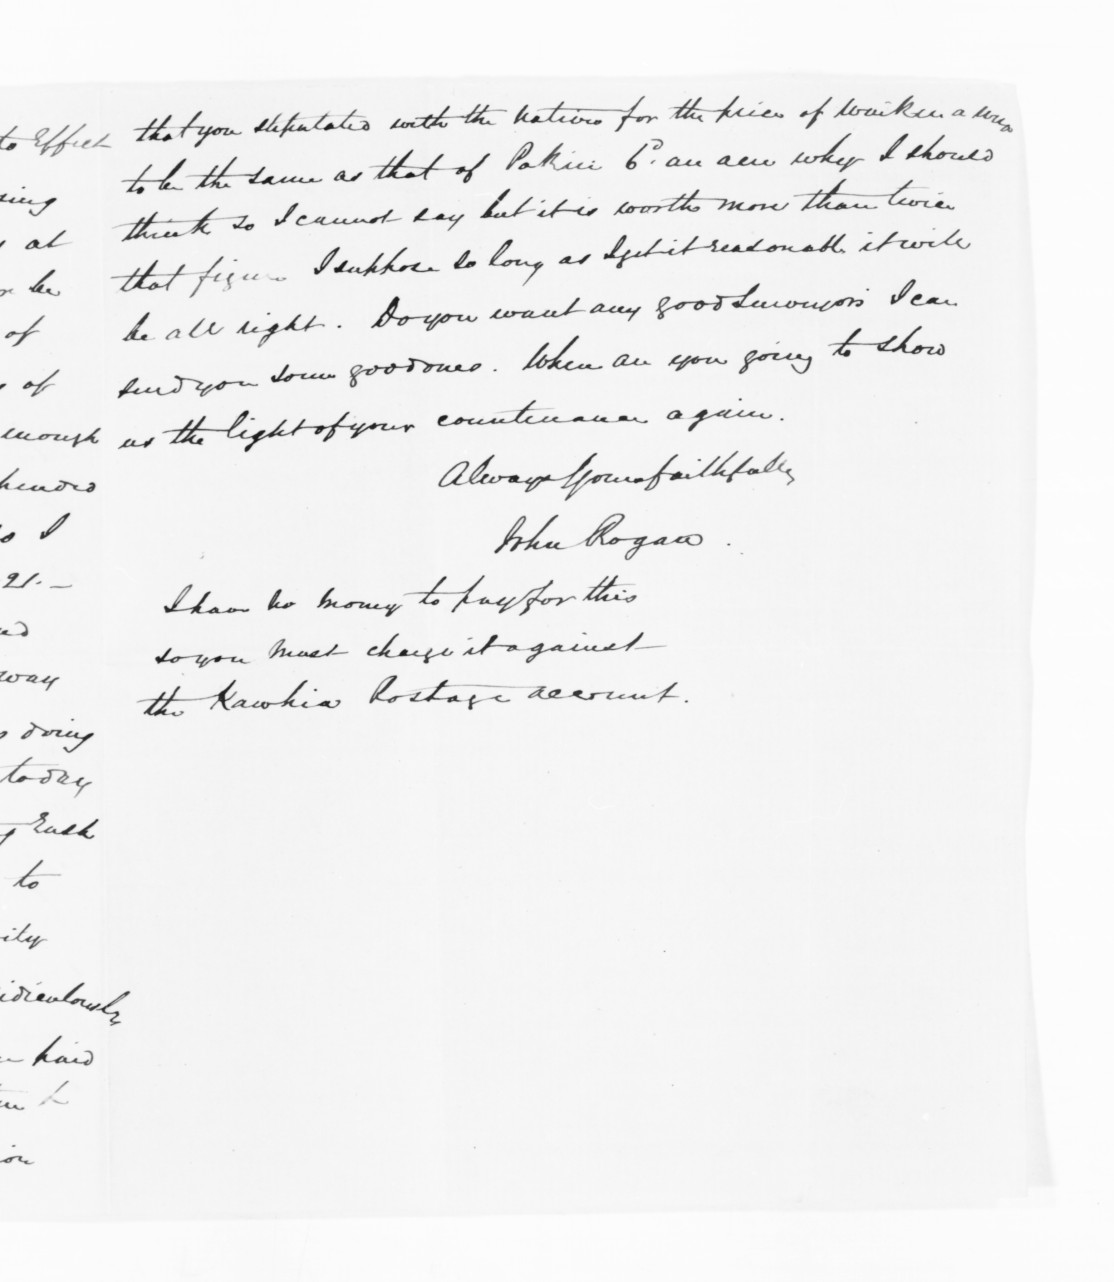 to Effect
sing
at
be
of
of
enough
I
21. —
way
doing
today
to
ridiculously
paid
that you stipulated with the natives for the price of
to be the same as that of Pakiri 6d. an acre why I should
think so I cannot say but it is worth more than twice
that figure I suppose so long as I get it reasonable it will
be all right. Do you want any good Surveyors I can
send you some good ones. When are you going to show
us the light of your countenance again.
Always Yours faithfully
John Rogan.
I have no money to pay for this
so you must charge it against
the Kawhia Postage account.